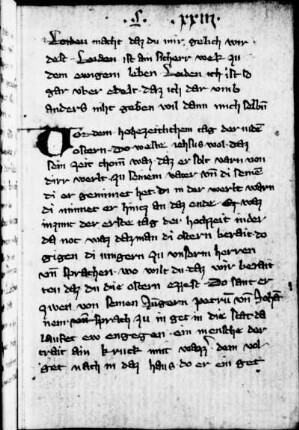 · f · xxiii ·
leiden macht daz du mir gelich wir
dest Leiden ist ain sicherr wek zu
dem ewigem leben Leiden ich ist so
gar uber edelt daz ich dar umb
anders niht geben wil dann mich selbn
Vor dem hohezeitlichem tag der iuden
ostern Do weste iehsus wol daz
sein zeit chom waz daz er solt varn von
dirr werlt zu seinem vater von di seinē
di er geminnet het di in der werlt warn
di minnet er hintz an daz ende Ez waz
inzunt der erste tag der hochzeit in der
da not waz daz man di ostern berait do
gigen di iungern zu unserm herren
von sprachen wo wilt du daz wir berait
ten daz du die ostern ezzest Do sant er
zwen von seinen Jungern petrū von Johan
nem von sprach zu in get in die stat da
laufet ew engegen ein mensche der
trait ain kruck mit wazz dem vol
get nach in daz haus do er ein get